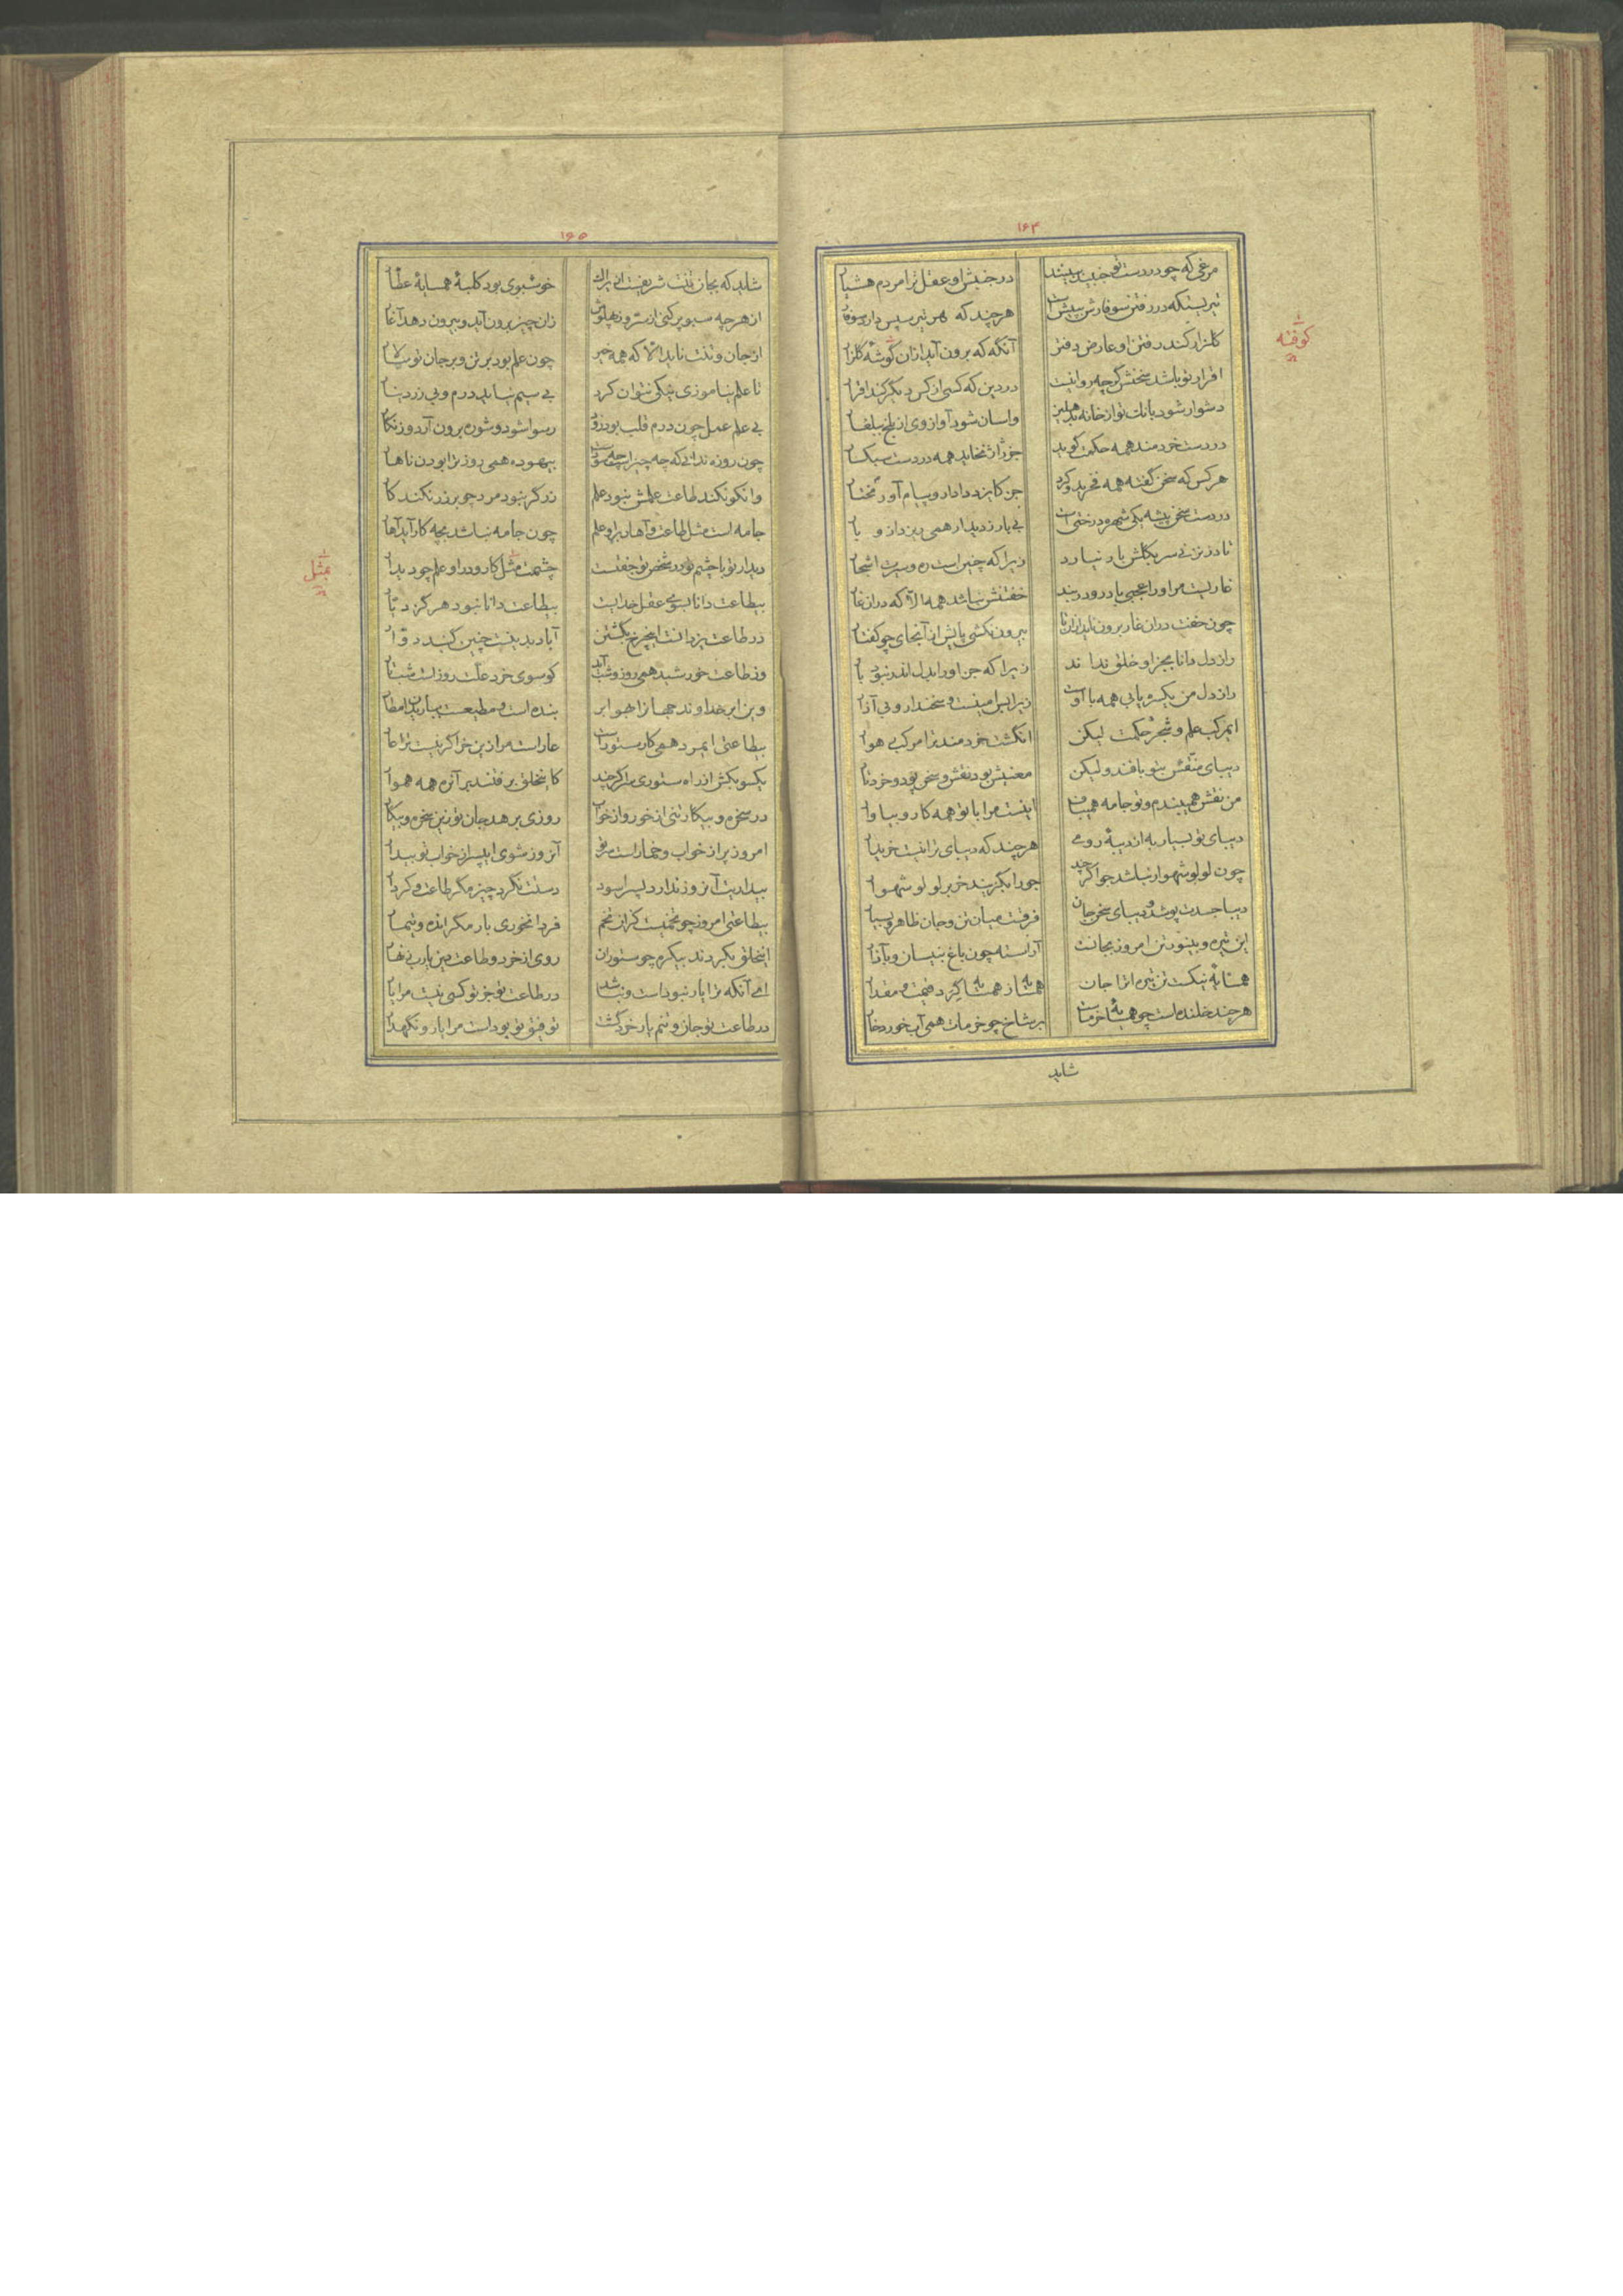 ۱۶۴
مرغی که چو در دست تو جنبید ببینند در جنبش او عقل ترا مردم هشیار
تیریستکه در رفتن سوفارش ببیش است هرچند که هر تیر سپس دارد سوفار
گلزار کند رفتن او عارض دفتر آنگه که برون آید ازان گوشه گلزار
اقرار تو باشد سخنش گرچه روا نیست در دین که کسی از کس دیگر کند اقرار
دشوار شود بانک تو از خانه بدهلیز واسان شود آواز وی از بلخ ببلغار
در دست خردمند همه حکمت گوید جز ژاژ نخاید همه در دست سبکسار
هر کس که سخن گفته همه فخر بدو کرد جز کایزد دادار و پیام آور مختار
در دست سخن پیشه یکی شهره درختی است بی بار ز دیدار همی ریزد ازو بار
تا در نزنی سر بگلش بار نیارد زیرا که چنین است ره و سیرت اشجار
غاریست مر او را عجبی باد و در بند خفتنش نباشد همه الا که دران غار
چون خفت دران غار برون ناید ازان تا بیرون نکشی پایش ازان جای چو کفتار
راز دل دانا بجز او خلق نداند زیرا که جز او را بدل اندر نبود بار
راز دل من یکسره یابی همه با اوست زیرا بس امینست و سخندار و بی آزار
ای مرکب علم و شجر حکمت لیکن انگشت خردمند ترا مرکب هموار
دیبای منقش بتو بافند ولیکن معنیش بود نقش و سخن پود و خرد تار
من نقش همی بندم و تو جامه همی باف اینست مرا با تو همه کار و بیاوار
دیبای تو بسیار به از دیبه رومی هرچند که دیبای ترا نیست خریدار
چون لولو شهوار نباشد جو اگرچند جو را بگزیند خر بر لولو شهوار
دیبا جسدت پوشد و دیبای سخن جان فرقست میان تن و جان ظاهر و بسیار
این تیره و بینور تن امروز بجانت آراسته چون باغ بنیسان و باذار
همسایه نیکست تن تیره ات را جان همسایه ز همسایه گرد قیمت و مقدار
هرچند خلنده است چو همسایه خرماست بر شاخ چو خرمات همی آب خورد خار
شاید
کوفته
۱۶۵
شاید که بجان تنت شریفست ازیراک خوشبوی بود کلبه همسایه عطار
از هرچه سبو پر کنی از سر وز پهلوش زان چیز برون آید و بیرون دهد آغار
از جان و تنت ناید الا که همه خیر چون علم بود بر تن و بر جان تو سالار
تا علم نیاموزی نیکی نتوان کرد بی سیم نیاید درم و بی زر دینار
بی علم عمل چون درم قلب بود زود رسوا شود و شوره برون آرد و زنگار
چون روزه ندانی که چه چیز است چه سود است بیهوده همی روز ترا بودن ناهار
وانکو نکند طاعت علمش نبود علم زرگر نبود مرد چو بر زر نکند کار
جامه است مثل طاعت و آهار برو علم چون جامه نباشد بچه کار آید آهار
دیدار تو با چشم تو در شخص تو جفتست چشمت مثل کار و درو علم چو دیدار
بیطاعت دانا بسوی عقل خدایست بیطاعت دانا نبود هرگز دیّار
در طاعت یزدانست این چرخ بگشتن آباد بدینست چنین گنبد دوّار
وز طاعت خورشید همی روز و شب آید کو سوی خرد علت روز است و شب تار
وین ابر خداوند جهان را بهوا بر بنده است و مطیعست ببارندن امطار
بیطاعتی ایمرد همی کار ستورانست عار است مرا زین خر اگر نیست ترا عار
یکسو بکش از راه ستوری سر اگرچند کاین خلق برفتند بر آن ره همه هموار
در سخره و بیگار تنی از خور و از خواب روزی برهد جان تو زین سخره و بیگار
امروز پر از خواب و خمار است سر تو آنروز شوی ای پسر از خواب تو بیدار
بیداریت آن روز ندارد پسرا سود دستت نگرد چیز مگر طاعت و کردار
بیطاعتی امروز چو تخمیست کزان تخم فردا نخوری بار مگر انده و تیمار
این خلق بکردند بیکره چو ستوران روی از خرد و طاعت دین یارب زنهار
ای آنکه ترا یار نبود است و نباشد در طاعت تو جز تو کسی نیست مرا یار
در طاعت تو جان و تنم یار خرد گشت توفیق تو بود است مرا یار و نگهدار
بمثل